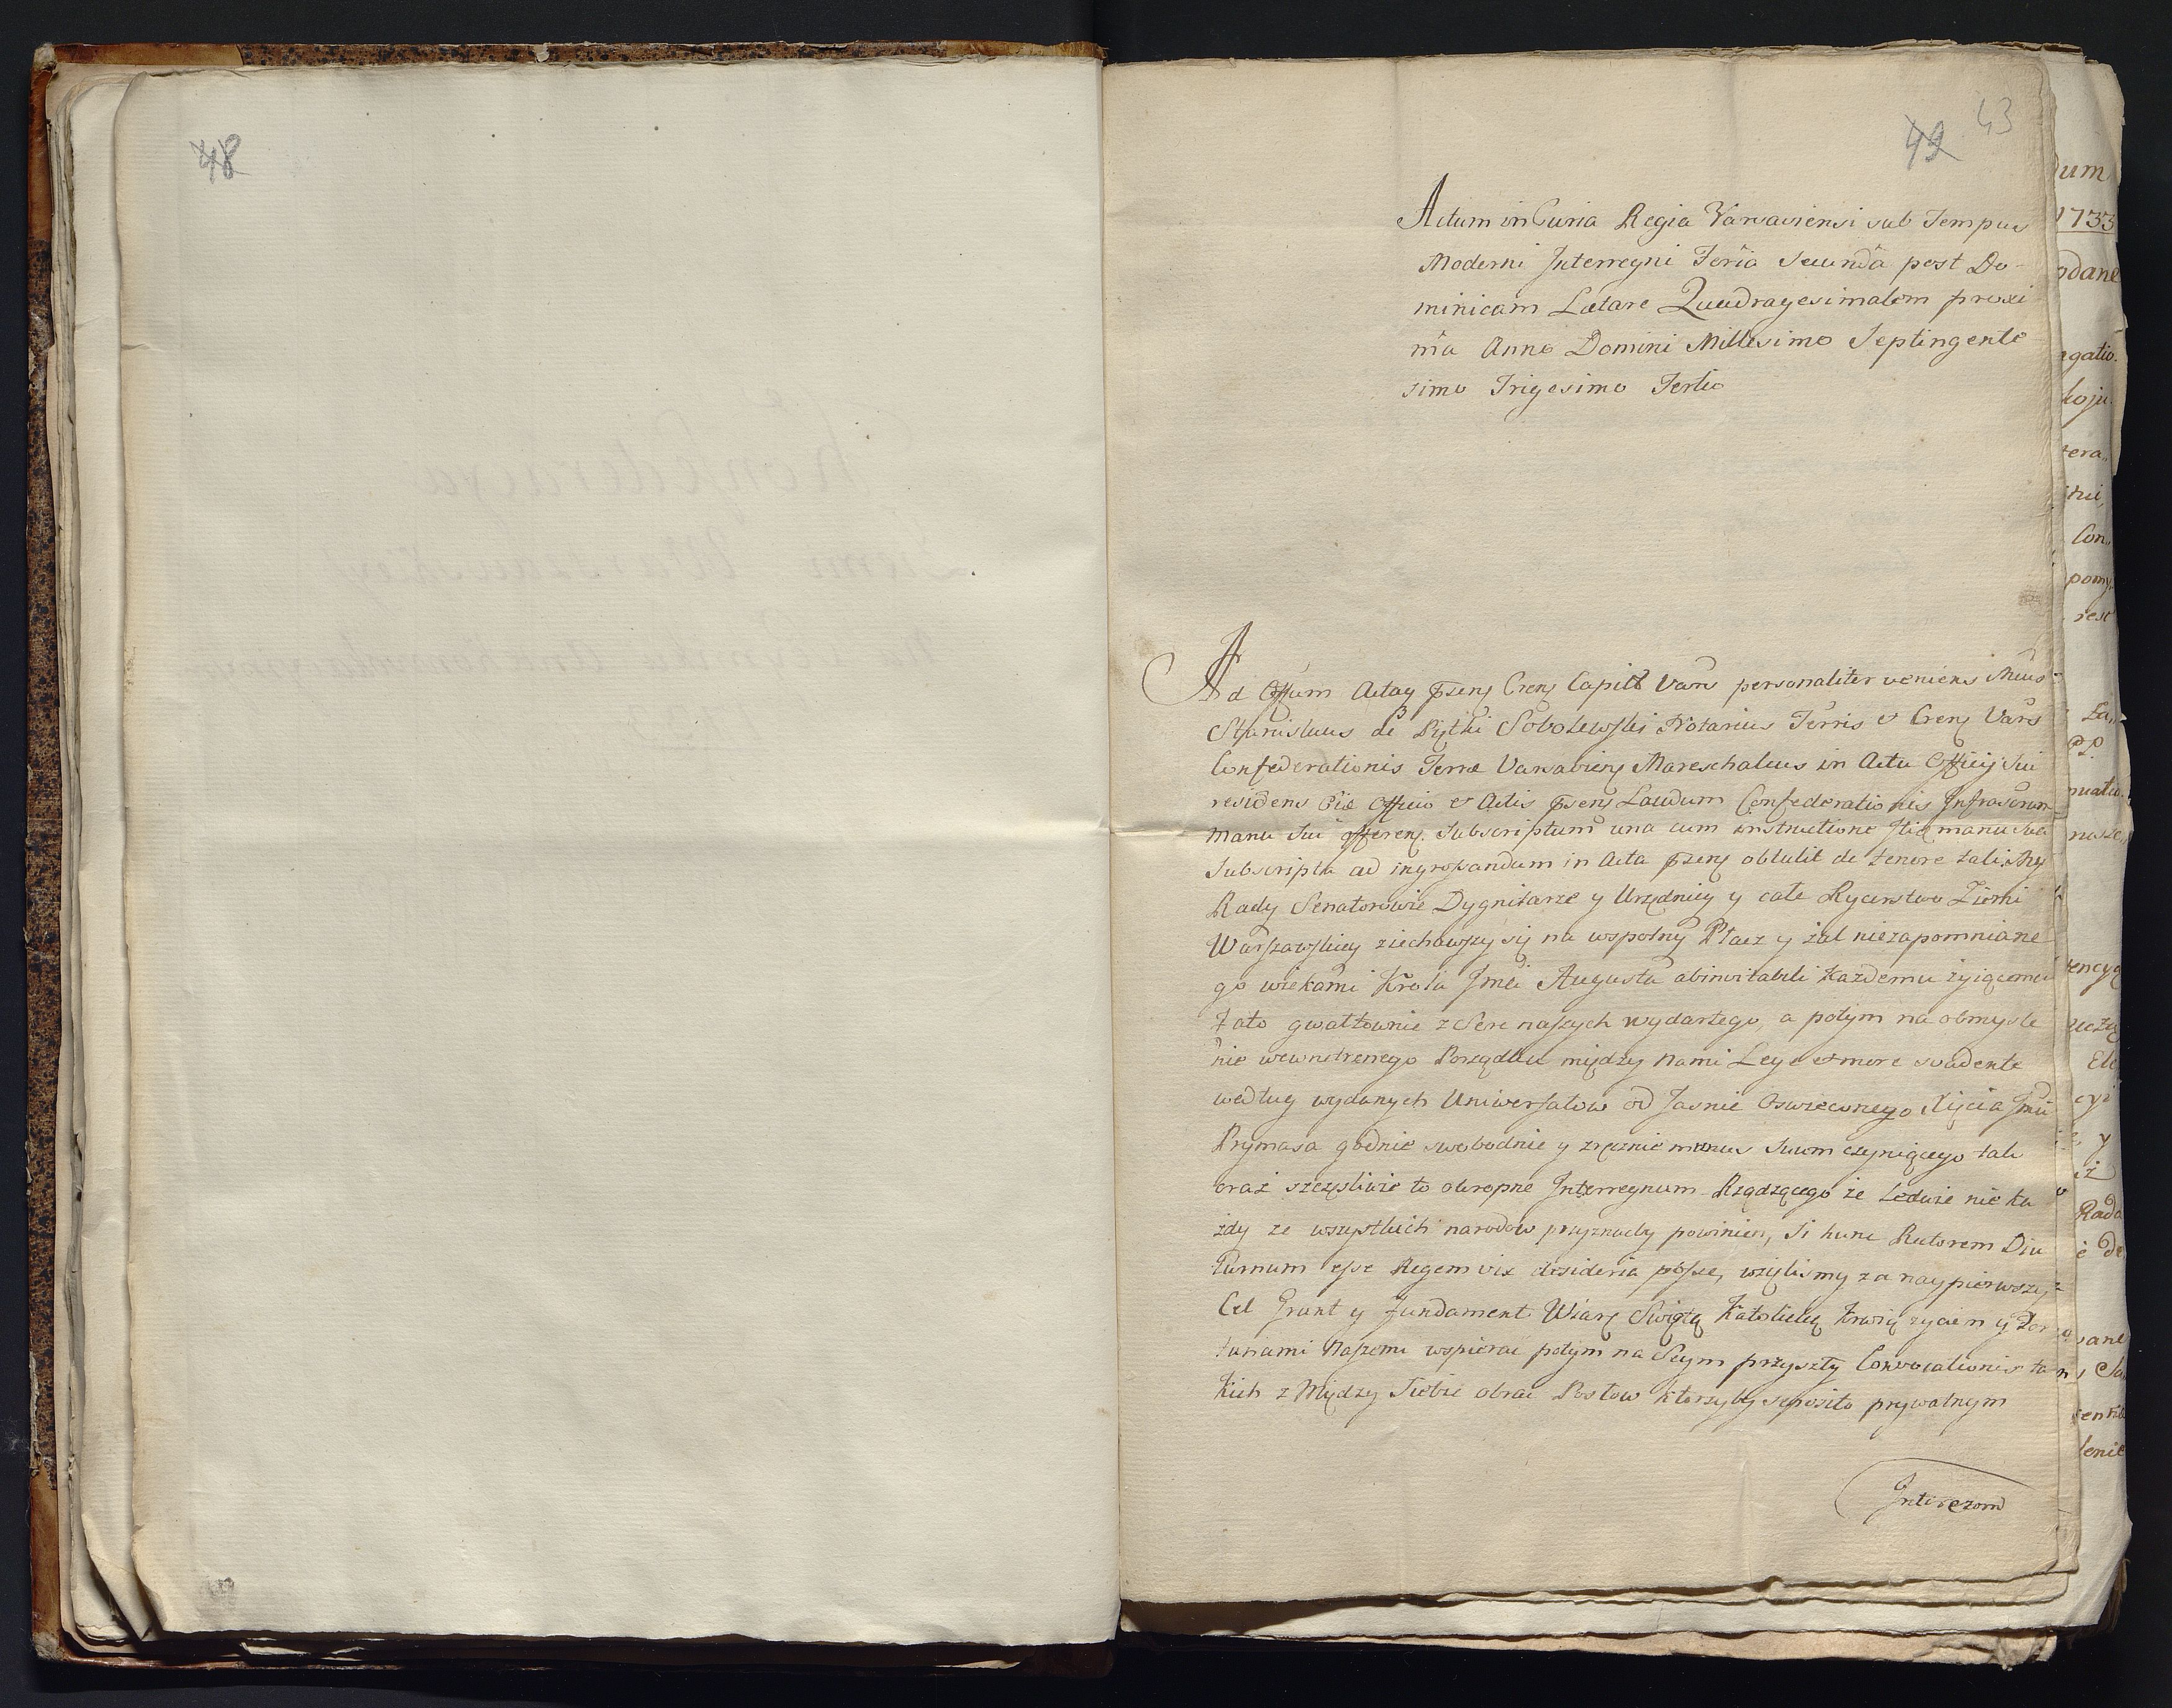 48
49 43
Actum in Curia Regia Varsaviensi sub Tempus
Moderni Interregni Feria Secunda post Do-
minicam Lætare Quadragesimalem proxi
ma Anno Domini Millesimo Septingente
simo Trigesimo Tertio
Ad Offium Actaq pseng Creng Capitl Vars personaliter veniens
Stanislaus de Pytki Sobolewski Notarius Terris & Creng Vars
Confederationis Terræ Varsavieng Mareschalcus in Actu Officij Sui
residens Officio & Actis pseng Laudum Confederationis Infrascrum
manu Sui offereng. Subscriptum una cum instructione manu sua
Subscripta ad ingrossandum in Acta pseng obtulit de tenore tali. My
Rady Senatorowie Dygnitarze y Urzędnicy y całe Rycerstwo Ziemi
Warszawskiey ziechawszy się na wspolny Płacz y żal niezapomniane
go wiekami Krola Jmci Augusta abinvitabili każdemu żyiącemu
Fato gwałtownie z Serc naszych wydartego, a potym na obmysle
nie wewnetrznego Porządku między Nami Lege et more suadente
według wydanych Uniwersałow od Jasnie Oswieconego Xięcia Jmci
Prymasa godnie swobodnie y zręcznie munus Suum czyniącego tak
oraz szczęsliwie to okropne Interregnum Rządzącego że Ledwie nie ka
żdy ze wszystkich narodow przyznacby powinien, Si hunc Rectorem Diu
turnum esse Regem vix desideria posse, wzięlismy za naypierwszy
Cel Grunt y fundament Wiarę Swiętą Katolicką krwią życiem y For
tunami Naszemi wspierac potym na Seym przyszły Convocationis ta
kich z Między Siebie obrac Posłow ktorzyby seposito prywatnym
Interezom
dum
1733
odane
egatio.
koju.
tera,,
Con,,
pomy,
rese
La,,
nasze,
encyą
Ele
cyi
y
iż
Rada
è de
wane
lenie